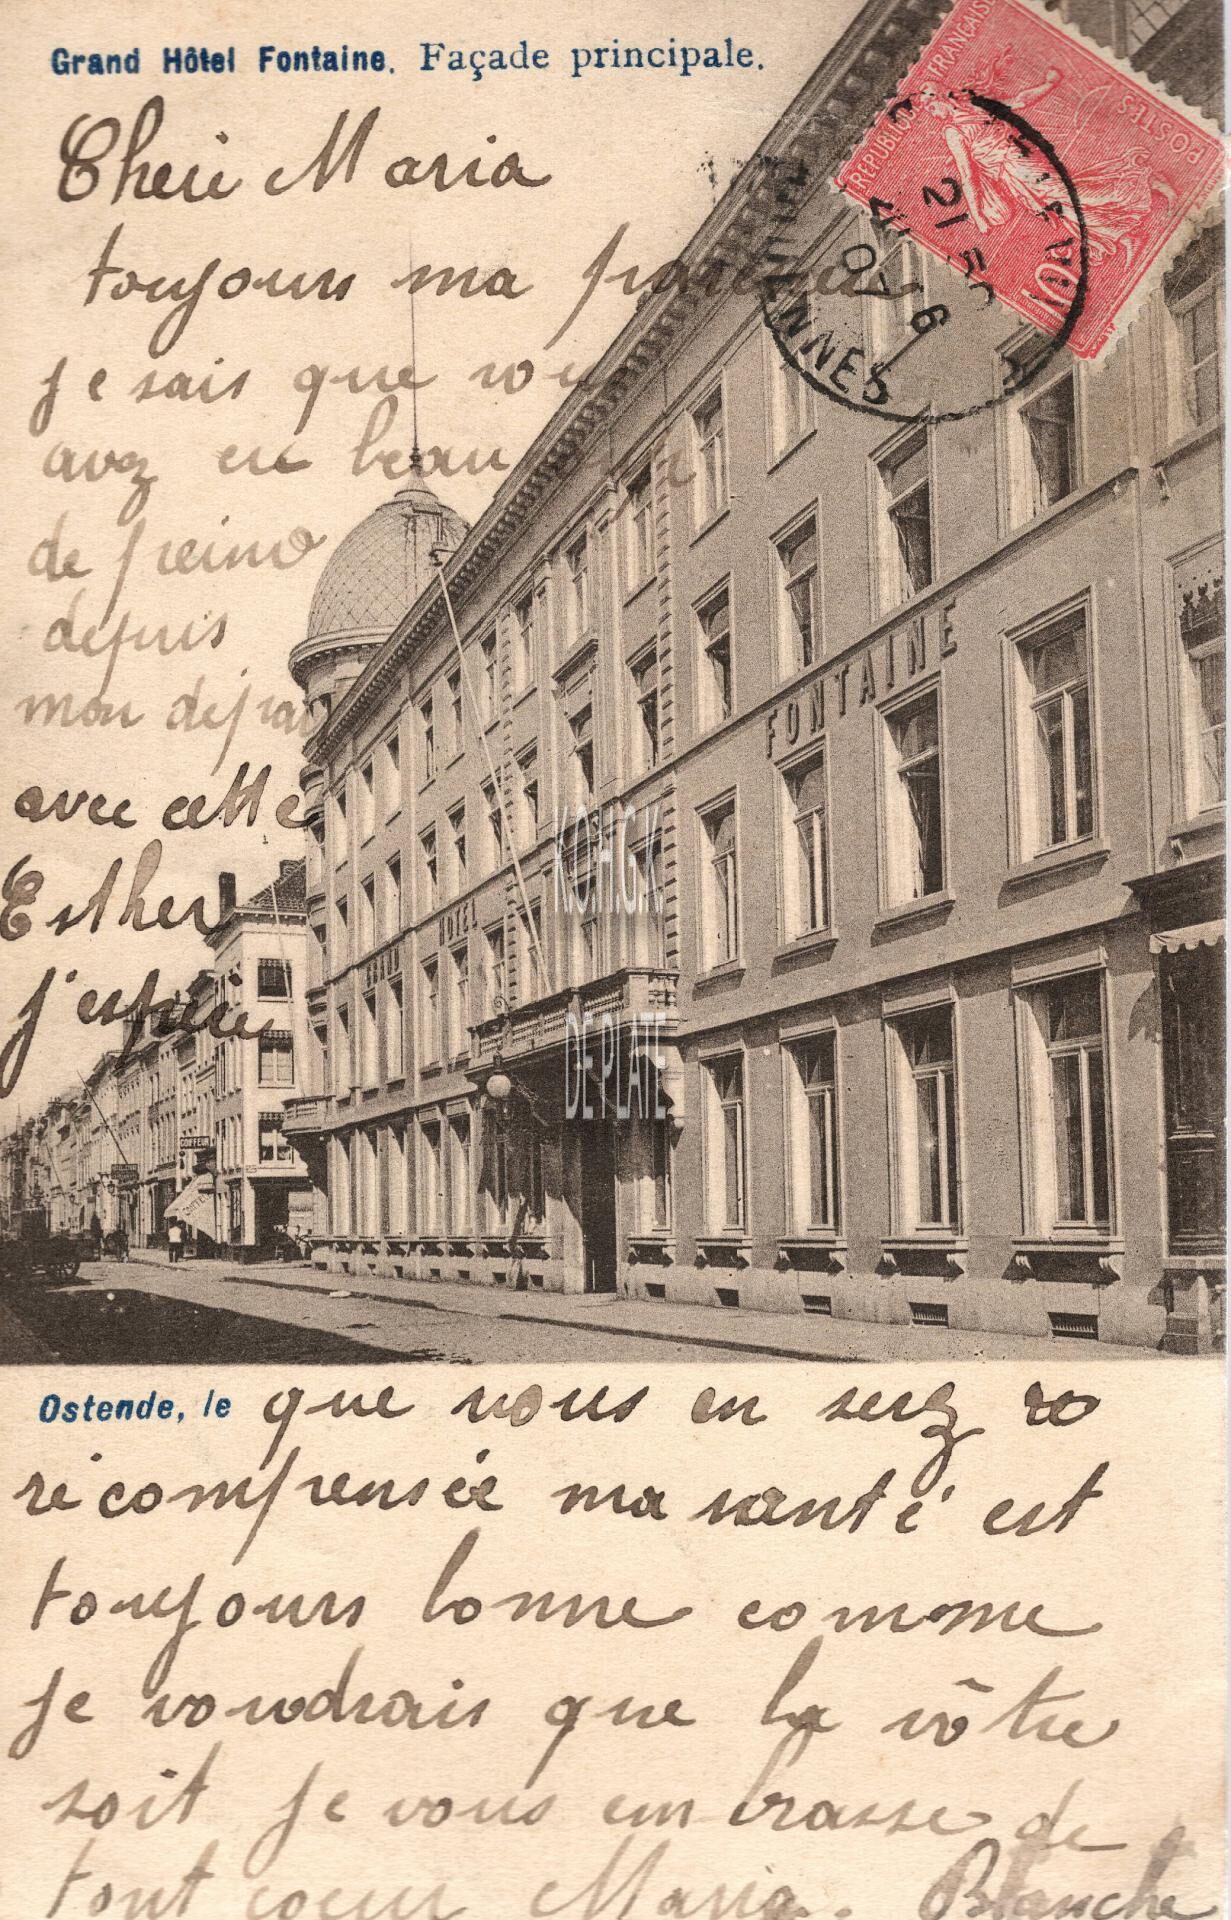 Grand Hôtel Fontaine. Façade principale.
RÉPUBLIQUE FRANÇAISE
POSTES
10
21 50
4
07 6
Cheri Maria
toujours ma
je sais que vous
avez eu beaucoup
de
depuis
mon départ
avec cette
Esther
j'espère
FONTAINE
GRAND HOTEL
KOHGK
DE PLATE
COIFFEUR
Ostende, le que vous en serez
récompensée ma santé est
toujours bonne comme
je voudrais que la vôtre
soit je vous embrasse de
tout coeur Maria. Blanche